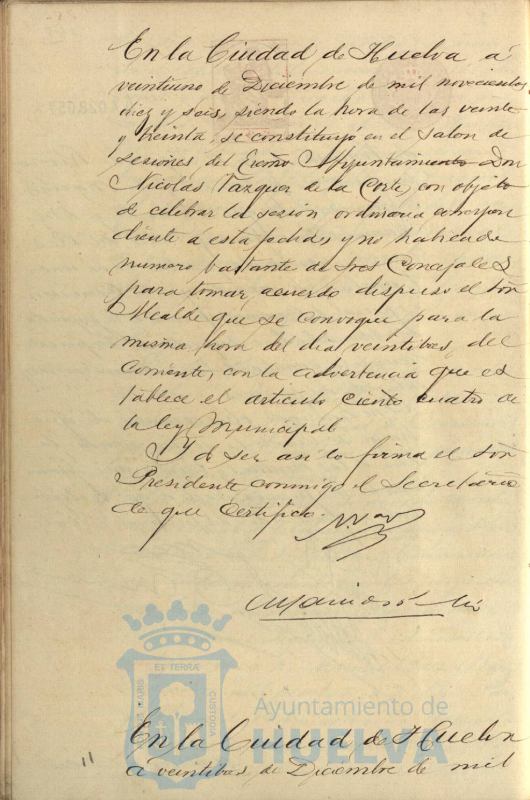 En la Ciudad de Huelva á
veintiuno de Diciembre de mil novecientos
diez y seis, siendo la hora de las veinte
y treinta, se constituyó en el Salon de
sesiones del Excmo Ayuntamiento Don
Nicolás Vázquez de la Corte, con objeto
de celebrar la sesion ordinaria correspon
diente á esta fecha y no habiendo
numero bastante de Sres Concejales
para tomar acuerdo dispuso el Sor
Alcalde que se convoque para la
misma hora del dia veintitres, del
corriente, con la advertencia que es
tablece el articulo ciento cuatro de
la ley Municipal
Y de ser asi lo firma el Sor
Presidente conmigo el Secretario
de que certifico.
ET TERRÆ
CUSTODIA
Ayuntamiento de
HUELVA
11
En la Ciudad de Huelva
a veintitres de Diciembre de mil